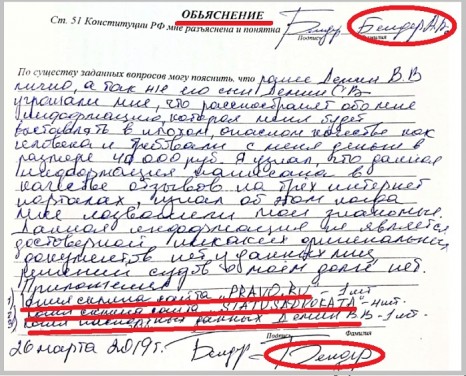 ОБЬЯСНЕНИЕ
Ст. 51 Конституции РФ мне разъяснена и понятна Бендер Бендер А.В.
Подпись Фамилия
По существу заданных вопросов могу пояснить, что ранее Демин В.В
лично, а так же его сын Демин С.В
угрожали мне, что распространят обо мне
информацию, которая меня будет
выставлять в плохом, опасном качестве как
человека и требовали с меня деньги в
размере 40 000 руб. Я узнал, что данная
информация написана в
качестве отзывов на трех интернет
порталах, узнал об этом когда
мне позвонили мои знакомые.
Данная информация не является
достоверной никаких официальных
документов нет у данных лиц,
решений судов о моем долге нет.
Приложения
1) копия скрина сайта "PRAVO.RU" - 1 лист
2) копия скрина сайта "STATUSADVOKATA" - 4 лист.
3) копия паспортных данных Демин В.В - 1 лист.
Подпись Фамилия
26 марта 2019г. Бендер Бендер